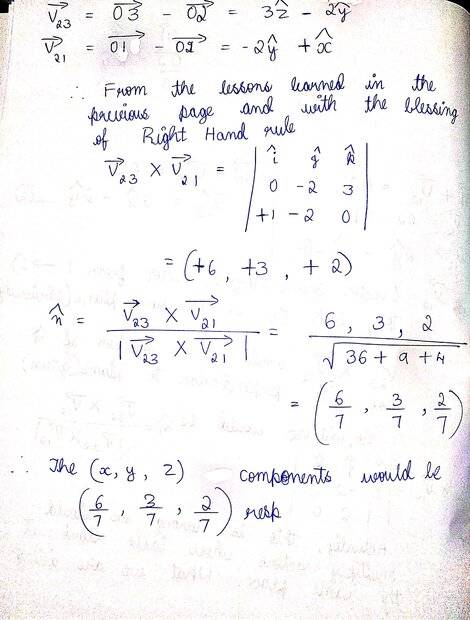 V⃗₂₃ = 0⃗3 - 0⃗2 = 3ẑ - 2ŷ
V⃗₂₁ = 0⃗1 - 0⃗2 = -2ŷ + x̂
∴ From the lessons learned in the
previous page and with the blessing
of Right Hand rule
V⃗₂₃ X V⃗₂₁ = | î ĵ k̂ |
| 0 -2 3 |
| +1 -2 0 |
= (+6, +3, +2)
n̂ = V⃗₂₃ X V⃗₂₁ / |V⃗₂₃ X V⃗₂₁| = 6, 3, 2 / √36+9+4
= (6/7, 3/7, 2/7)
∴ The (x, y, z) components would be
(6/7, 3/7, 2/7) resp